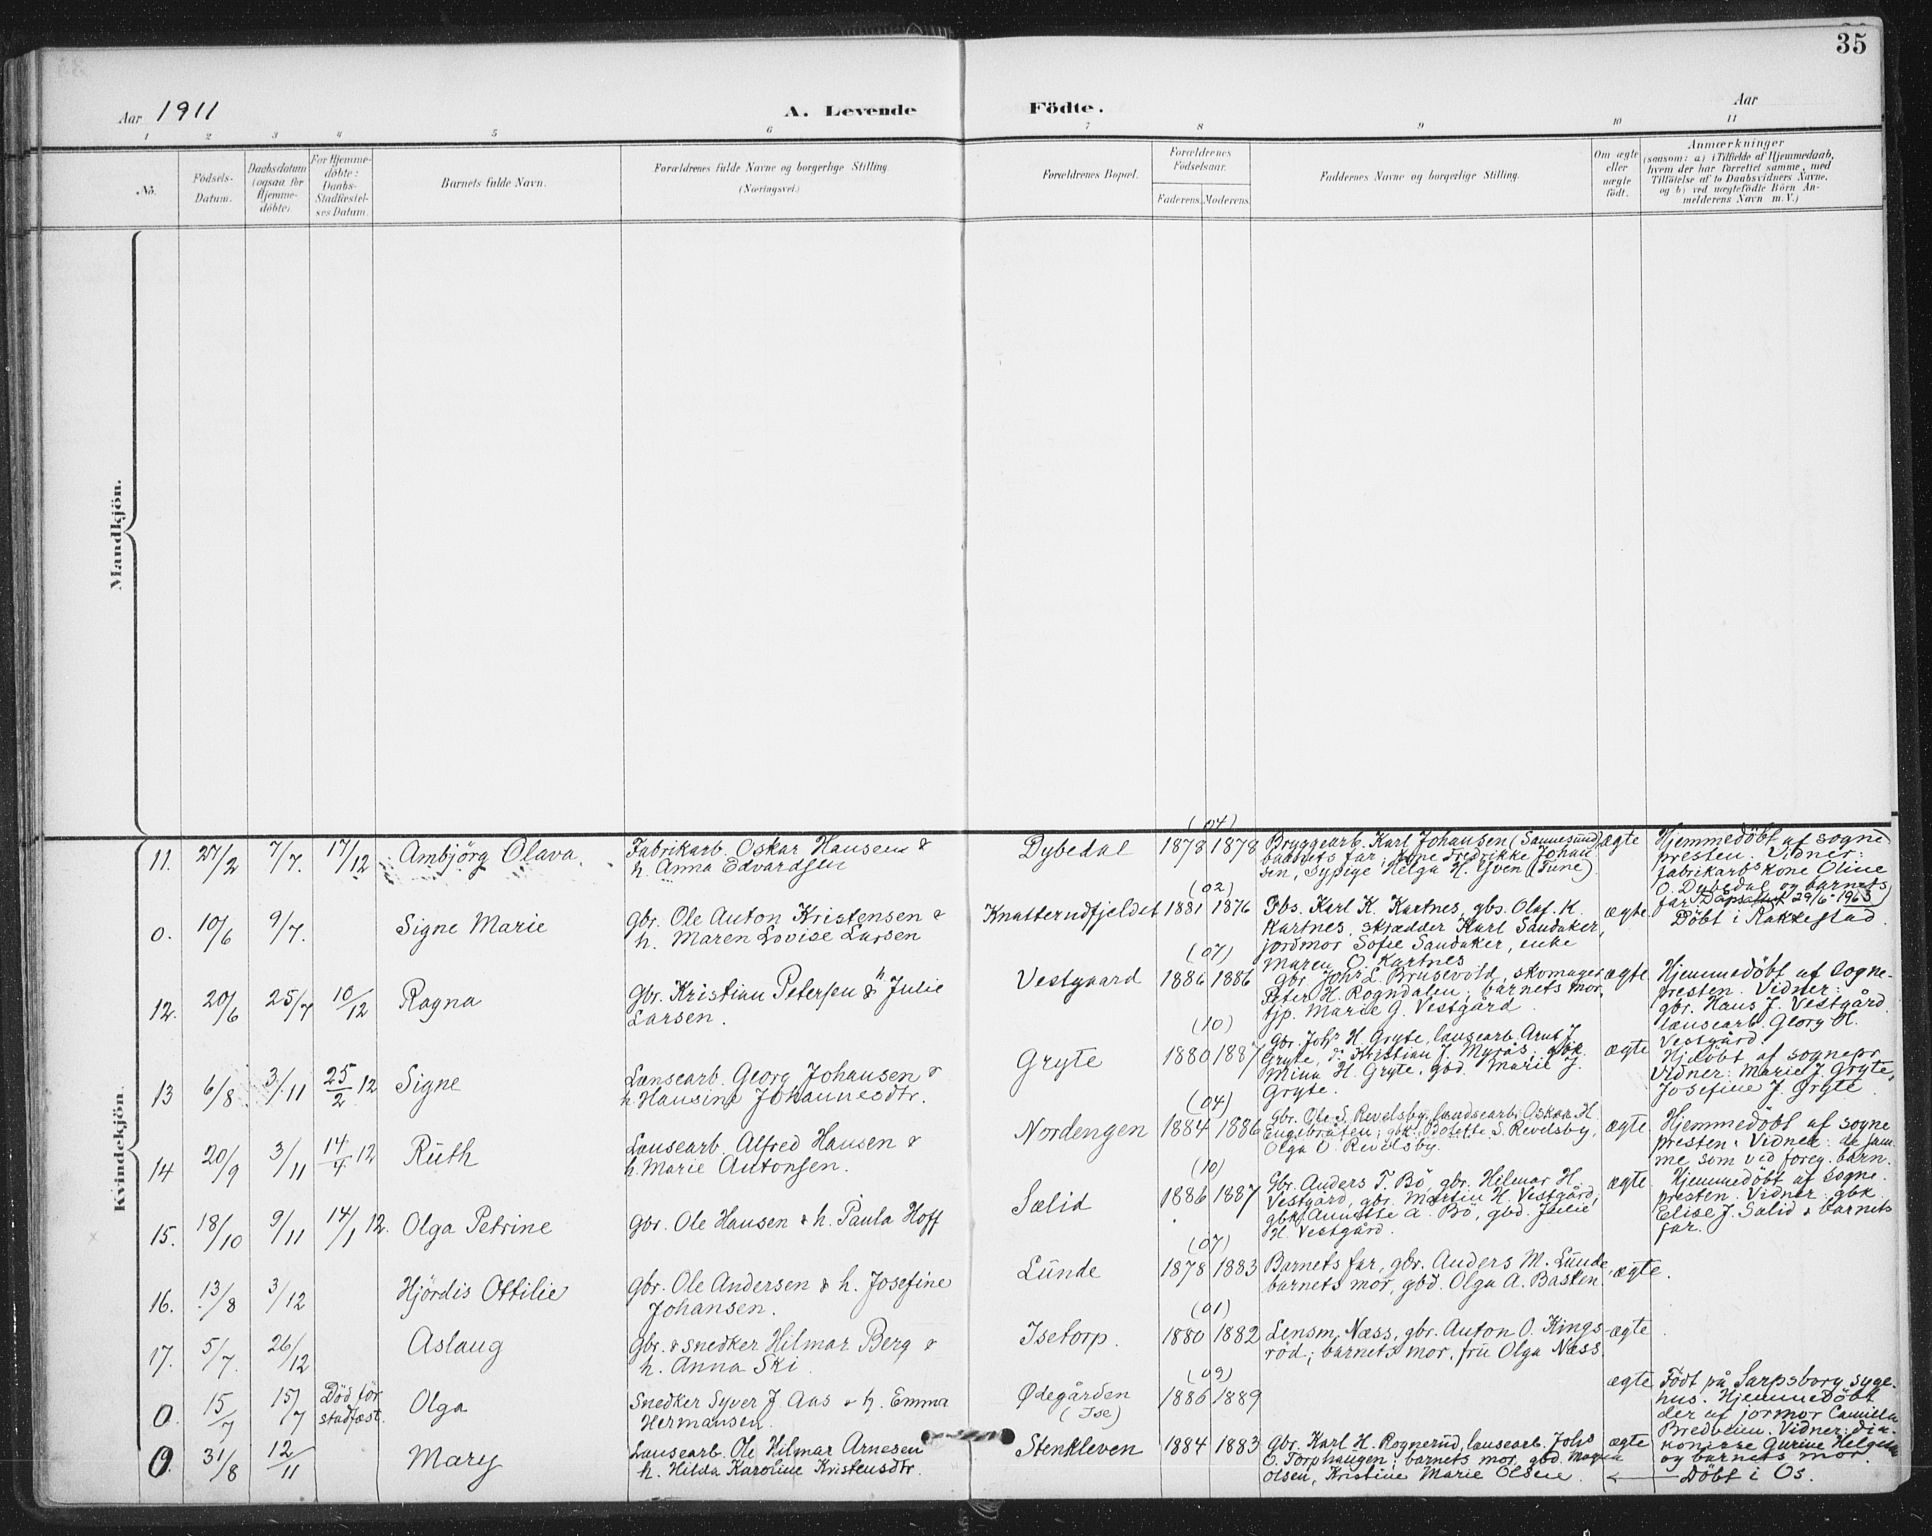 35
Aar 1911
A. Levende
Födte.
Aar
1 2 3 4 5 6 7 8 9 10 11
No.
Födsels-
Datum.
Daabsdatum
(ogsaa for
Hjemme-
döbte).
For Hjemme-
döbte:
Daabs-
Stadfæstel-
ses Datum.
Barnets fulde Navn.
Forældrenes fulde Navne og borgerlige Stilling
(Næringsvei.)
Forældrenes Bopæl.
Forældrenes
Födselsaar.
Faderens. Moderens.
Faddernes Navne og borgerlige Stilling.
Om ægte
eller
uægte
födt.
Anmærkninger
(saasom: a) i Tilfælde af Hjemmedaab,
hvem der har forrettet samme, med
Tilföielse af to Daabsvidners Navne,
og b) ved uægtefödte Börn An-
melderens Navn m. V.)
Mandkjön.
Kvindekjön.
11. 27/2 7/7. 17/12 Ambjörg Olava.
Fabrikarb. Oskar Hansen &
h. Anna Edvardsen
Dybedal
(04)
1878 1878
Bryggearb. Karl Johansen (Sannesund)
barnets far; kone Fredrikke Johan
sen, sypige Helga H. Yven (Tune)
ægte
Hjemmedöbt af sogne
presten. Vidner:
fabrikarb.s kone Oline
O. Dybedal og barnets
far. Dåpsattest 29/6-1963
0. 10/6 9/7. Signe Marie
Gbr. Ole Anton Kristensen &
h. Maren Lovise Larsen
Knatterudfjeldet
(02)
1881 1876
Gbs. Karl K. Kartnes, gbs. Olaf K.
Kartnes, skrædder Karl Sandaker,
jordmor Sofie Sandaker, enke
Maren O. Kartnes
ægte
Döbt i Rakkestad.
12. 20/6 25/7 10/12 Ragna
Gbr. Kristian Petersen & h. Julie
Larsen.
Vestgaard
(07)
1886 1886
Gbr. Johs L. Brusevold, skomager
Peter H. Rogndalen; barnets mor,
tjp. Marie G. Vestgård
ægte
Hjemmedöbt af sogne-
presten. Vidner:
gbr. Hans J. Vestgård
lansearb. Georg H.
Vestgård.
13 6/8 3/11 25/2 12 Signe
Lænsearb. Georg Johansen &
h. Hansine Johannesdtr.
Gryte
(10)
1880 1887
Gbr. Johs H. Gryte, lansearb. Arnt J.
Gryte, do Kristian J. Myrås, gbk.
Mina H. Gryte, gbd. Marie J.
Gryte.
ægte
Hjdöbt af sognepr
Vidner: Marie J. Gryte,
Josefine J. Gryte
14 20/9 3/11 14/4 12 Ruth
Lansearb. Alfred Hansen &
h. Marie Antonsen.
Nordengen
(04)
1884 1886
Gbr. Ole S. Revelsby, landsearb. Oskar H.
Engebråten; gbk. Bolette S. Revelsby,
Olga O. Revelsby.
ægte
Hjemmedöbt af sogne
presten. Vidner: de sam
me som ved foreg. barn.
15. 18/10 9/11 14/1 12. Olga Petrine
Gbr. Ole Hansen & h. Paula Hoff
Sælid
(10)
1886 1887
Gbr. Anders T. Bö, gbr. Helmar H.
Vestgård, gbr. Martin H. Vestgård,
gbk. Annette A. Bö, gbd. Julie
H. Vestgård.
ægte
Hjemmedöbt af sogne-
presten. Vidner: gbk
Elise J. Sælid & barnets
far.
16. 13/8 3/12 Hjördis Ottilie
Gbr. Ole Andersen & h. Josefine
Johansen.
Lunde
(07)
1878 1883
Barnets far, gbr. Anders M. Lunde,
barnets mor, gbd. Olga A. Basten
ægte.
17. 5/7. 26/12 Aslaug
Gbr. & snedker Hilmar Berg &
h. Anna Ski
Isetorp.
(01)
1880 1882
Lensm. Næss, gbr. Anton O. Kings-
röd; barnets mor, fru Olga Næss.
ægte
0. 15/7 15/7 Död för
stadfæst. Olga
Snedker Syver J. Aas & h. Emma
Hermansen.
Ødegården
(Ise)
(09)
1886 1889
ægte
Födt på Sarpsborg syge-
hus. Hjemmedöbt
der af jormor Camilla
Bredheim. Vidner: dia-
konisse Gurine Helgesen
og barnets mor.
0. 31/8 12/11 Mary
Lansearb. Ole Hilmar Arnesen
h. Hilda Karoline Kristensdtr.
Stenkleven
1884 1883
Gbr. Karl H. Rognerud, lansearb. Johs
O. Torphaugen; barnets mor, gbd. Magna
Olsen, Kristine Marie Olsen
ægte
Döbt i Os.